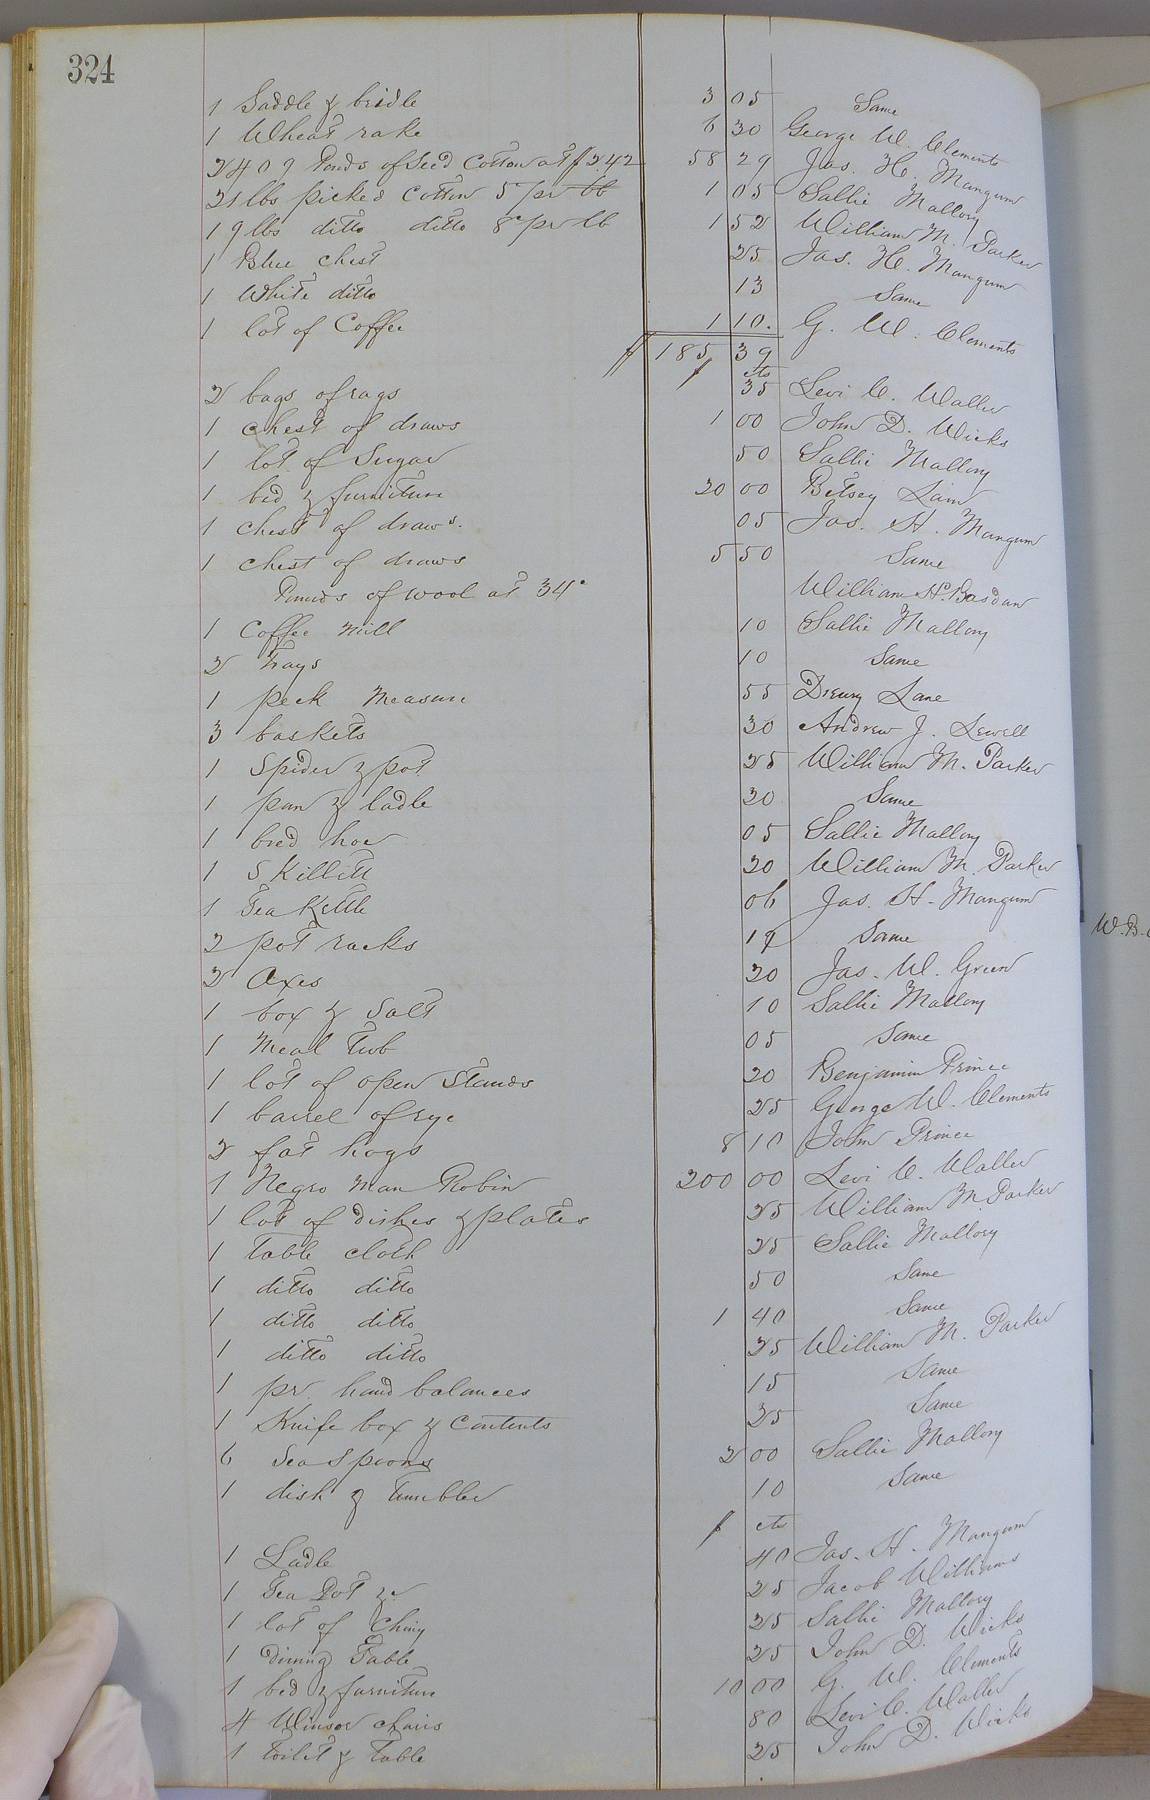 324
1 Saddle & bridle 3 05 Same
1 Wheat rake 6 30 George W. Clements
2409 Pouds of Seed Cotton at $2.42 58 29 Jas. H. Mangum
21 lbs picked Cotton 5 pr lb 1 05 Sallie Mallory
19 lbs ditto ditto 8c pr lb 1 52 William M. Parker
1 Blue chest 25 Jas. H. Mangum
1 White ditto 13 Same
1 lot of Coffee 1 10. G. W. Clements
$ 185 39
$ cts
2 bags of rags 35 Levi C. Waller
1 chest of draws 1 00 John D. Wicks
1 lot of Sugar 50 Sallie Mallory
1 bed & furniture 20 00 Betsey
1 chest of draws. 05 Jas. H. Mangum
1 chest of draws 5 50 Same
Pounds of wool at 34c William H.
1 Coffee Mill 10 Sallie Mallory
2 trays 10 Same
1 peck Measure 55 Drewry Lane
3 baskets 30 Andrew J. Sewell
1 Spider & pot 25 William M. Parker
1 pan & ladle 30 Same
1 hoe 05 Sallie Mallory
1 Skillett 20 William M. Parker
1 Tea Kettle 06 Jas. H. Mangum
2 pot racks Same
2 Axes 20 Jas. W. Green
1 box & Salt 10 Sallie Mallory
1 Meal Tub 05 Same
1 lot of open Stands 20 Benjamin Prince
1 barrel of rye 25 George W. Clements
2 fat hogs 8 10 John Prince
1 Negro Man Robin 200 00 Levi C. Waller
1 lot of dishes & plates 25 William M. Parker
1 table cloth 25 Sallie Mallory
1 ditto ditto 50 Same
1 ditto ditto 1 40 Same
1 ditto ditto 25 William M. Parker
1 pr. hand balances 15 Same
1 Knife box & Contents 35 Same
6 Tea Spoons 2 00 Sallie Mallory
1 dish & Tumbler 10 Same
$ cts
1 Ladle 40 Jas. H. Mangum
1 Tea Pot &c 25 Jacob Williams
1 lot of Chiny 25 Sallie Mallory
1 dining Table 25 John D. Wicks
1 bed & furniture 10 00 G. W. Clements
4 Winsor chairs 80 Levi C. Waller
1 toilet & Table 25 John D. Wicks
W. B.